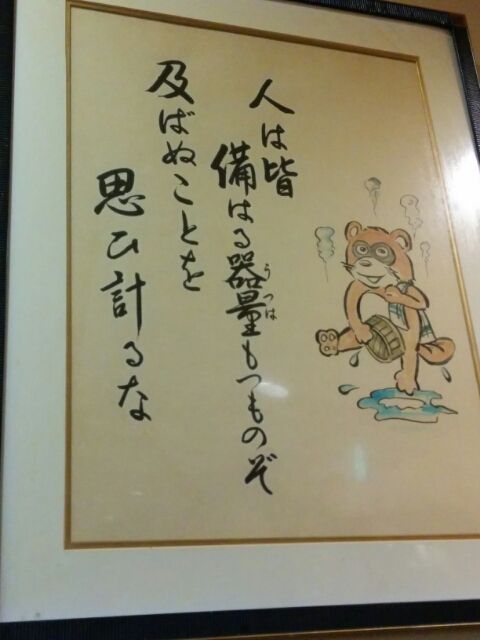 人は皆
備はる器量もつものぞ
うつは
及ばぬことを
思ひ計るな